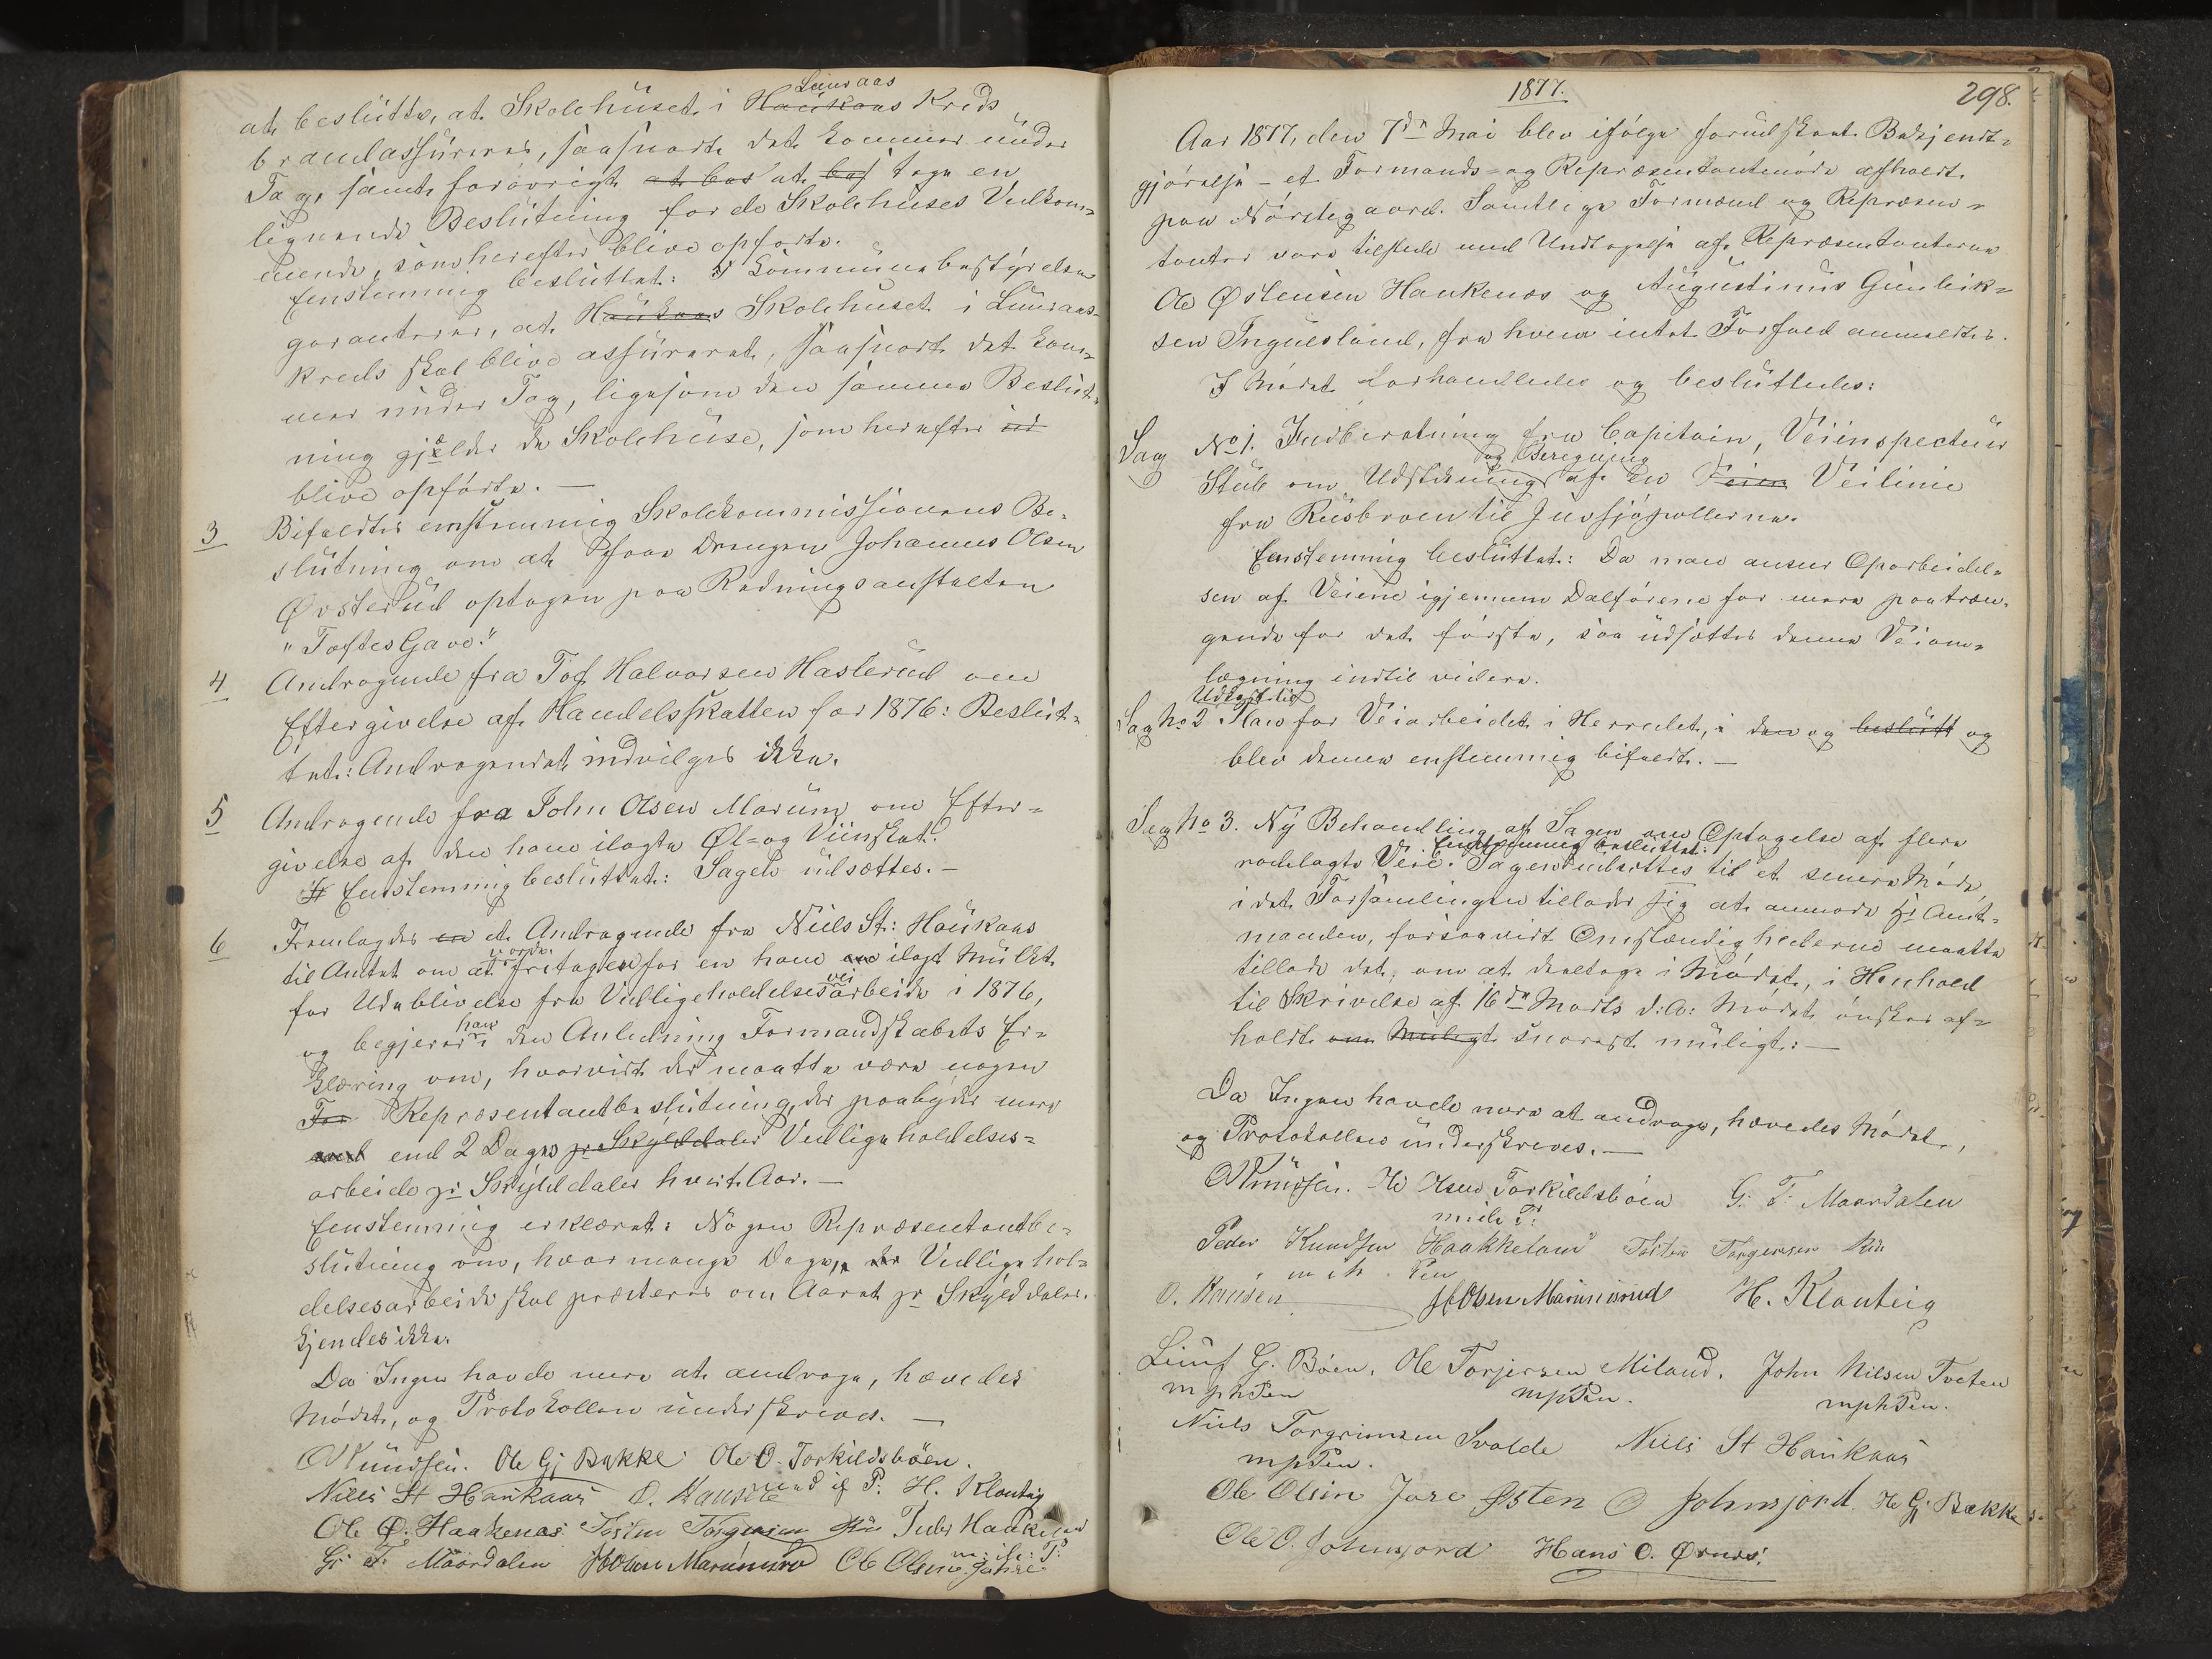 Luuraas
at beslutte, at Skolehuset i Haukaas Kreds
brandassureres, saasnart det kommer under
Tag, samt forøvrigt at bes at bes tage en
lignende Beslutning for de Skolehuses Vedkom-
mende, som herefter blive opførte.
Eenstemmig besluttet: I Kommunebestyrelsen
garanterer, at Haukaas Skolehuset i Luuraas-
Kreds skal blive assureret, saasnart det kom-
mer under Tag, ligesom den samme Beslut-
ning gjælder de Skolehuse, som herefter
blive opførte. —
3 Bifaldtes enstemmig Skolekommissionens Be-
slutning om at faae Drengen Johannes Olsen
Ørsterud optagen paa Redningsanstalten
"Toftes Gave."
4 Andragende fra Tof Halvorsen Hasterud om
Eftergivelse af Handelsskatten for 1876: Beslut-
tet: Andragendet indvilges ikke.
5 Andragende fra John Olsen Marum om Efter-
givelse af den ham ilagte Øl- og Viinskat.
Eenstemmig besluttet: Sagen udsættes. —
6 Fremlagdes en et Andragende fra Niels St: Haukaas
til Amtet om at vorde fritagen for en ham ilagt Mulkt
for Udeblivelse fra Vedligeholdelsesveiarbeide i 1876,
og begjerer han i den Anledning Formandskabets Er-
klæring om, hvorvidt der maatte være nogen
For Repræsentantbeslutning, der paabyder mere
end 2 Dages pr Skylddaler Vedligeholdelses-
arbeide pr Skylddaler hvert Aar. —
Eenstemmig erklæret: Nogen Repræsentantbe-
slutning om, hvor mange Dage, der Vedligehol-
delsesarbeide skal præsteres om Aaret pr Skylddaler.
kjendes ikke.
Da Ingen havde mere at andrage, hævedes
Mødet, og Protokollen underskreves. —
AKnudsen. Ole Gj Bakke Ole O. Torkildsbøen.
Niels St Haukaas O. Hansen med if P: H. Klonteig
Ole Ø. Haakenæs Torsten Torgersen Peder Haakeland
m: ih: P:
G: T: Maardalen JHOlsen Marumsrud Ole Olsen Jahre
1877. 298.
Aar 1877, den 7de Mai blev ifølge forudskeet Bekjendt-
gjørelse - et Formands- og Repræsentantmøde afholdt
paa Nørstegaard. Samtlige Formænd og Repræsen-
tanter vare tilstede med Undtagelse af Repræsentanterne
Ole Østensen Haukenæs og Augustinus Gunleik-
sen Ingulsland, fra hvem intet Forfald anmeldtes.
I Mødet forhandledes og besluttedes:
Sag No 1. Indberetning fra Capitain, Veiinspecteur
og Beregning
Stub om Udstikning af en Veien Veilinie
fra Rusbroen til Juvsjøpollerne.
Eenstemmig besluttet: Da man anser Oparbeidel-
sen af Veiene igjennem Dalførene for mere paatræn-
gende for det første, saa udsættes denne Veiom-
lægning indtil videre.
Udkast til
Sag No 2 Plan for Veiarbeidet i Herredet, i den og beslutt og
blev denne enstemmig bifaldt. —
Sag No 3. Ny Behandling af Sagen om Optagelse af flere
Eenstemmig besluttet:
rodelagte Veie. Sagen udsættes til et senere Møde,
idet Forsamlingen tillader sig at anmode Hr Amt-
manden, forsaavidt Omstændighederne maatte
tillade det, om at deeltage i Mødet, i Henhold
til Skrivelse af 16de Marts d: A: Mødet ønskes af-
holdt om muligt snarest muligt: —
Da Ingen havde mere at andrage, hævedes Mødet,
og Protokollen underskreves. —
AKnudsen. Ole Olsen Torkildsbøen G: T: Maardalen
m: ih: P:
Peder Knudsen Haakkeland Torsten Torgersen
m ih Pen
O. Hansen JHOlsen Marumsrud H. Klonteig
Liuf G. Bøen, Ole Torjersen Miland, John Nilsen Tveten
mphPen mpPen. mphPen.
Niels Torgrimsen Svalde Niels St Haukaas
mpPen.
Ole Olsen Jore Østen O Johnsjord. Ole Gj Bækkes.
Ole O. Johnsjord Hans O. Ørnes.